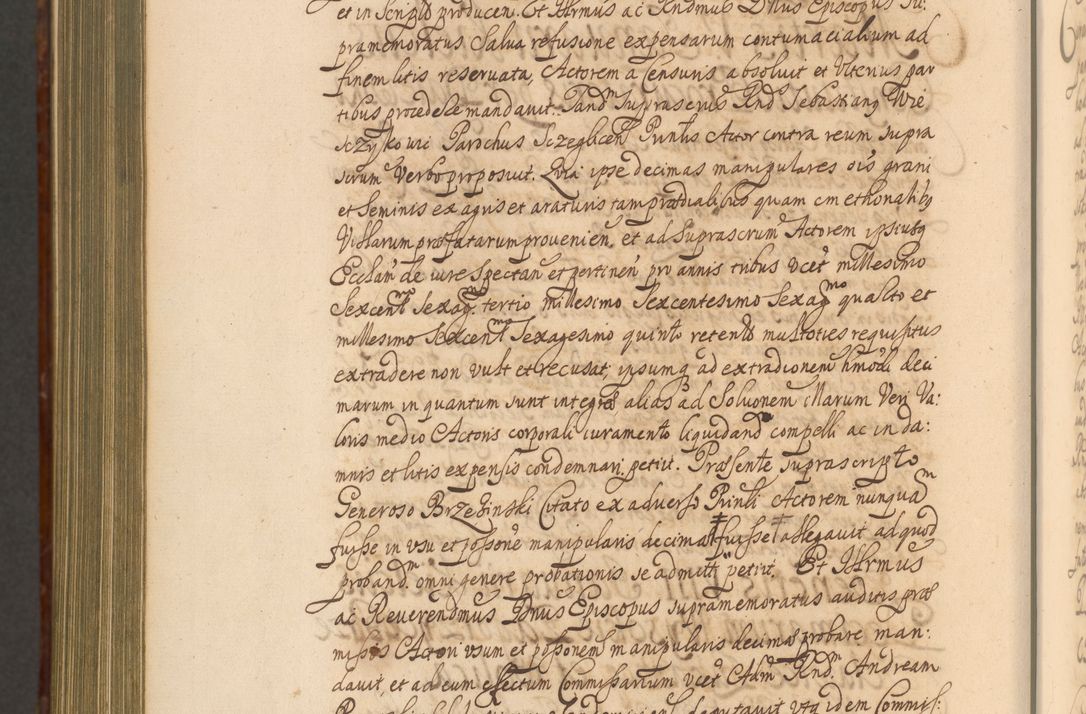 et in Scripto producen. Et Illrmus ac Rndmus Dnus Episcopus Su:
pramemoratus Salva refusione expensarum contumacialium ad
finem litis reservata, Actorem a Censuris absoluit et Vlterius par
tibus procedere mandavit. Tand. Suprascrus Rnd Sebastiang Wie
sczyko wic Parochus Sczeglicen Prntis Actor contra reum supra
scrum Verbo proposuit. Quia ipse decimas manipulares ois grani
et Seminis ex agris et araturis tam prædialibus quam cmethonalibg
Villarum præfatarum provenien, et ad Suprascrum Actorem ipsiusq
Ecclam de iure spectan et pertinen pro annis tribus vcet millesimo
Sexcent. Sexag. tertio, millesimo Sexcentesimo Sexagmo quarto et
millesimo Sexcent. Sexagesimo quinto retento multoties requisitus
extradere non vult et recusat, ipsumq ad extradionem hmodi deci
marum in quantum sunt integræ alias ad Soluonem illarum Veri Va:
loris medio Actoris corporali iuramento liquidand compelli ac in da:
mnis et litis expensis condemnari petiit. Præsente suprascripto
Generoso Brzezinski Citato ex adverso Prinli Actorem nunqua
fuisse in vsu et possone manipularis decimæ fuisse allegavit ad quod
proband. omni genere probationis se admitti petiit. Et Illrmus
ac Reverendmus Dnus Episcopus supramemoratus auditis præ
missis Actori vsum et possonem manipularis decimæ probare man:
davit, et ad eum effectum Commissarium vcet Adm Rnd. Andream